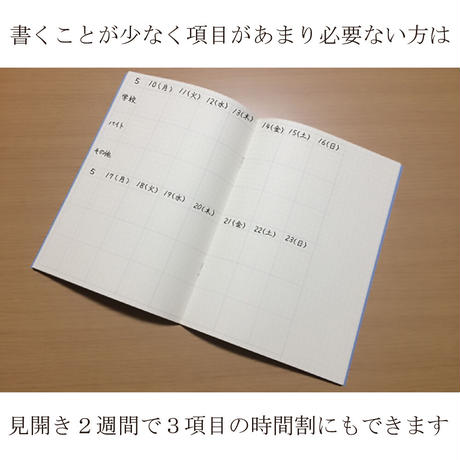 書くことが少なく項目があまり必要ない方は
5 10(月) 11(火) 12(水) 13(木) 14(金) 15(土) 16(日)
学校
バイト
その他
5 17(月) 18(火) 19(水) 20(木) 21(金) 22(土) 23(日)
見開き2週間で3項目の時間割にもできます